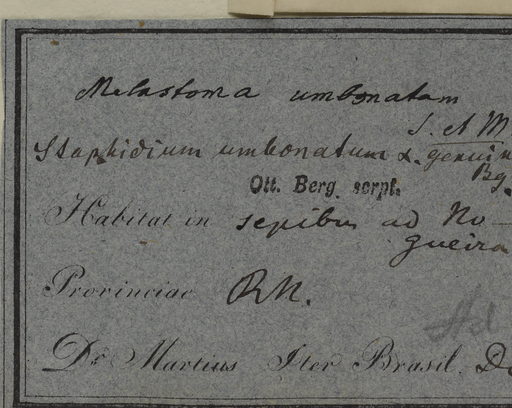 Melastoma umbonatum
S. et M
Staphidium umbonatum α. genuin
Bg.
Ott. Berg scrpt.
Habitat in sepibus ad No-
gueira
Provinciae
Dr. Martius Iter Brasil. De